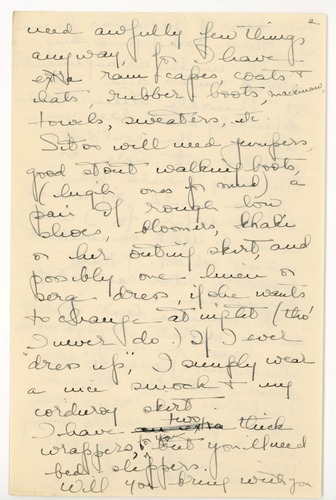 2.
need awfully few things
anyway, for I have
extra rain capes, coats +
hats, rubber boots, mackinaw,
towels, sweaters, etc.
She will need jumpers,
good stout walking boots,
(high ones for mud) a
pair of rough low
shoes, bloomers, khaki
or her outing skirt, and
possibly one linen or
serge dress, if she wants
to change at night (tho'
I never do.) If I ever
"dress up", I simply wear
a nice smock + my
corduroy skirt.
I have an extra two thick
wrappers, for you but you'll need
bed slippers.
Will you bring with you